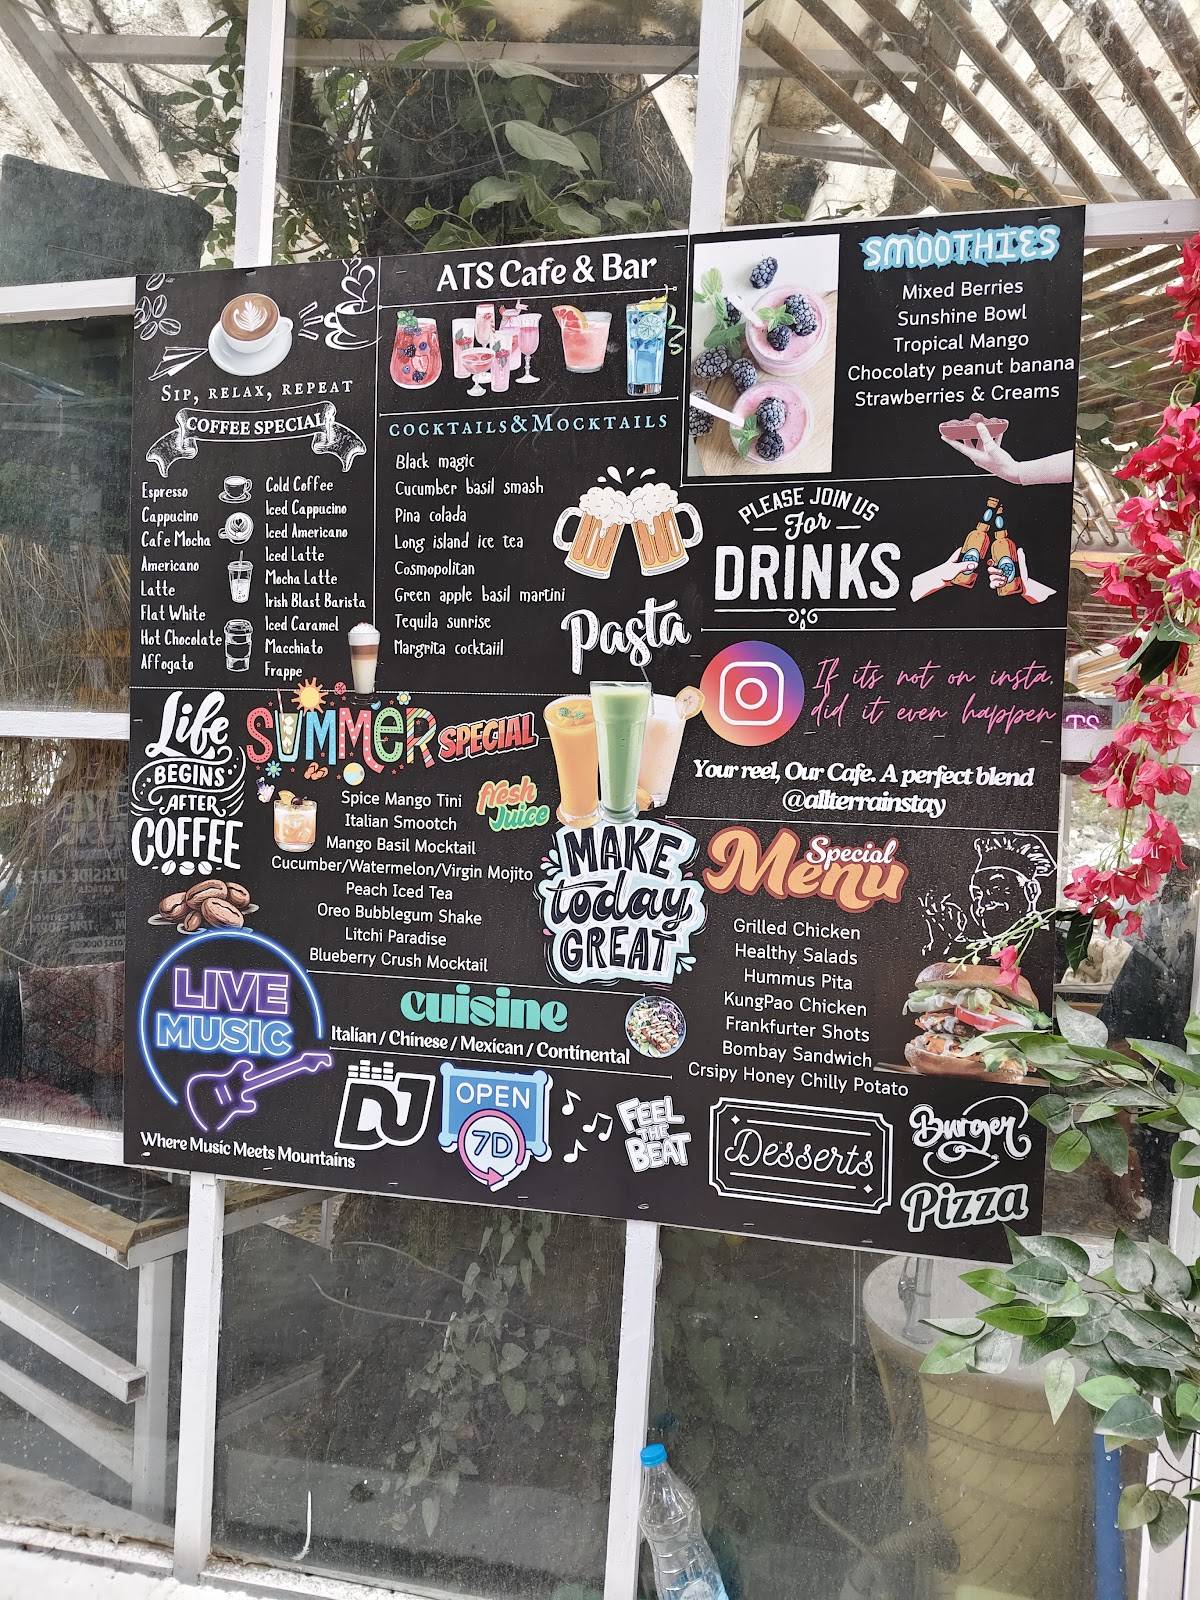 ATS Cafe & Bar
SIP, RELAX, REPEAT
COFFEE SPECIAL
Espresso
Cappucino
Cafe Mocha
Americano
Latte
Flat White
Hot Chocolate
Affogato
Cold Coffee
Iced Cappucino
Iced Americano
Iced Latte
Mocha Latte
Irish Blast Barista
Iced Caramel
Macchiato
Frappe
COCKTAILS&MOCKTAILS
Black magic
Cucumber basil smash
Pina colada
Long island ice tea
Cosmopolitan
Green apple basil martini
Tequila sunrise
Margrita cocktaiil
Pasta
SMOOTHIES
Mixed Berries
Sunshine Bowl
Tropical Mango
Chocolaty peanut banana
Strawberries & Creams
PLEASE JOIN US
For
DRINKS
If its not on insta,
did it even happen
Your reel, Our Cafe. A perfect blend
@allterrainstay
Life
BEGINS
AFTER
COFFEE
SUMMER SPECIAL
Spice Mango Tini
Italian Smootch
Mango Basil Mocktail
Cucumber/Watermelon/Virgin Mojito
Peach Iced Tea
Oreo Bubblegum Shake
Litchi Paradise
Blueberry Crush Mocktail
fresh
Juice
MAKE
today
GREAT
Special
Menu
Grilled Chicken
Healthy Salads
Hummus Pita
KungPao Chicken
Frankfurter Shots
Bombay Sandwich
Crsipy Honey Chilly Potato
LIVE
MUSIC
Where Music Meets Mountains
cuisine
Italian / Chinese / Mexican / Continental
DJ
OPEN
7D
FEEL
THE
BEAT
Desserts
Burger
Pizza